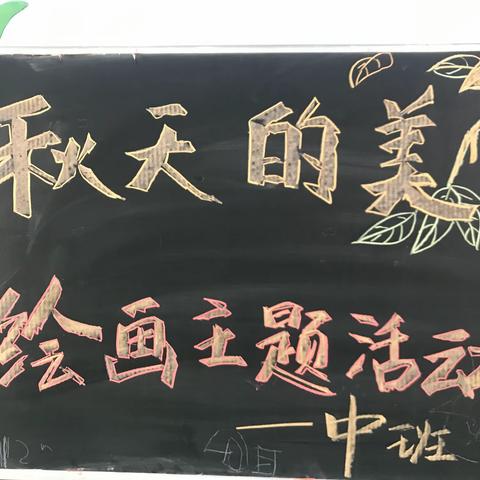 秋天的美
绘画主题活动
——中班